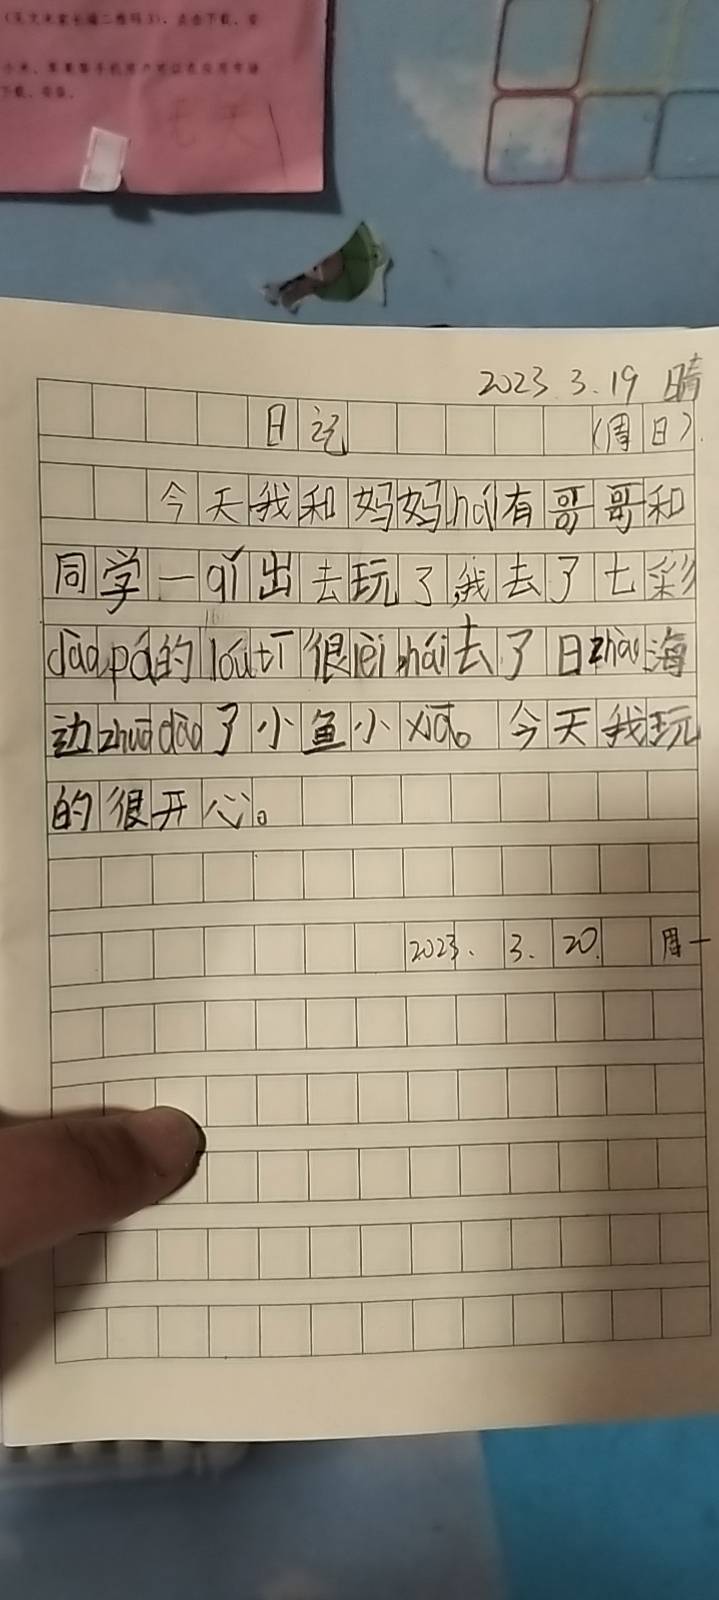 下载、安装。
七天
2023.3.19 晴
日记 (周日)
今天我和妈妈hái有哥哥和
同学一qǐ出去玩了,我去了七彩
dàopá的lóutī很lèi,hái去了日zhào海
边zhuādào了小鱼小xiā。今天我玩
的很开心。
2023.3.20. 周一